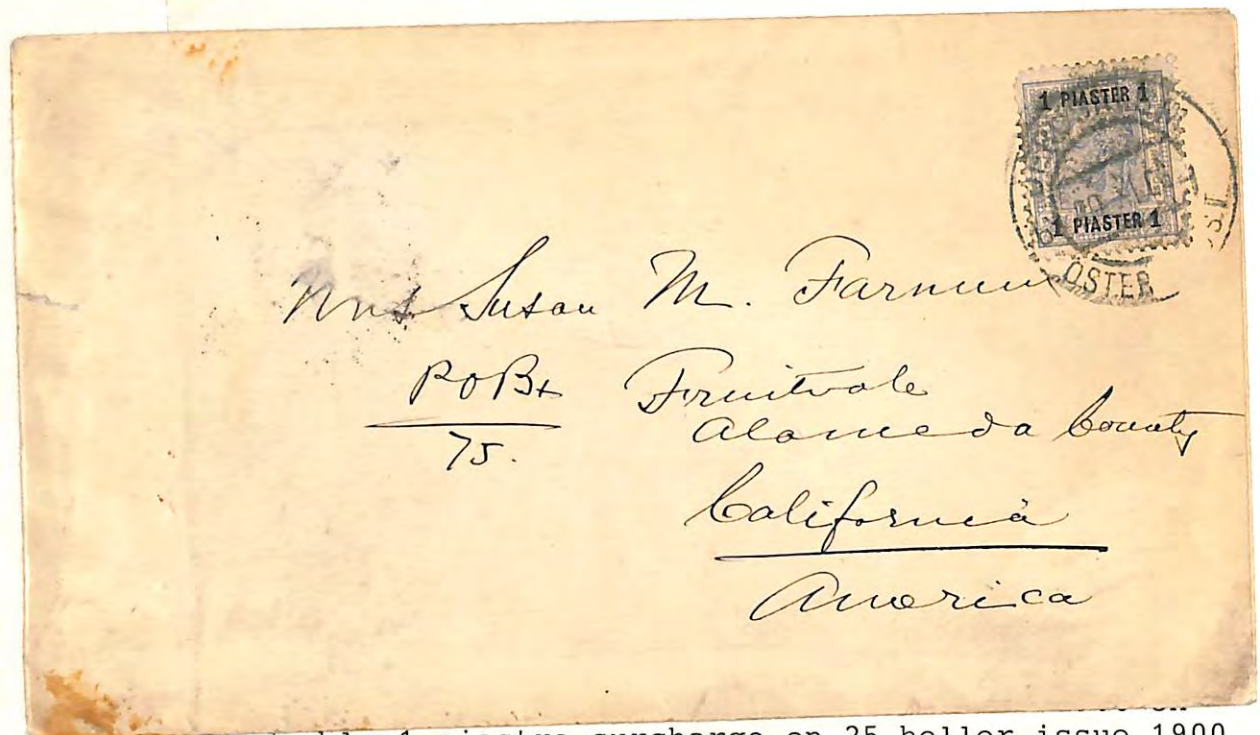 1 PIASTER 1
1 PIASTER 1
ÖSTER
Mrs. Susan M. Farnum
P O Bx Fruitvale
75. Alameda County
California
America
surcharge on 25 heller issue 1900